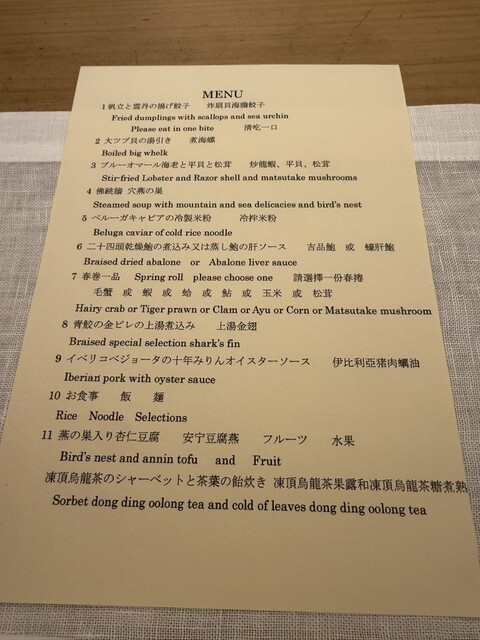 MENU
1 帆立と雲丹の揚げ餃子 炸扇貝海膽餃子
Fried dumplings with scallops and sea urchin
Please eat in one bite 清吃一口
2 大ツブ貝の湯引き 煮海螺
Boiled big whelk
3 ブルーオマール海老と平貝と松茸 炒龍蝦、平貝、松茸
Stir-fried Lobster and Razor shell and matsutake mushrooms
4 佛跳牆 穴燕の巣
Steamed soup with mountain and sea delicacies and bird's nest
5 ベルーガキャビアの冷製米粉 冷拌米粉
Beluga caviar of cold rice noodle
6 二十四頭乾燥鮑の煮込み又は蒸し鮑の肝ソース 吉品鮑 或 蠔肝鮑
Braised dried abalone or Abalone liver sauce
7 春巻一品 Spring roll please choose one 請選擇一份春捲
毛蟹 或 蝦 或 蛤 或 鮎 或 玉米 或 松茸
Hairy crab or Tiger prawn or Clam or Ayu or Corn or Matsutake mushroom
8 青鮫の金ビレの上湯煮込み 上湯金翅
Braised special selection shark's fin
9 イベリコベジョータの十年みりんオイスターソース 伊比利亞猪肉蠣油
Iberian pork with oyster sauce
10 お食事 飯 麺
Rice Noodle Selections
11 燕の巣入り杏仁豆腐 安宁豆腐燕 フルーツ 水果
Bird's nest and annin tofu and Fruit
凍頂烏龍茶のシャーベットと茶葉の飴炊き 凍頂烏龍茶果露和凍頂烏龍茶糖煮熟
Sorbet dong ding oolong tea and cold of leaves dong ding oolong tea